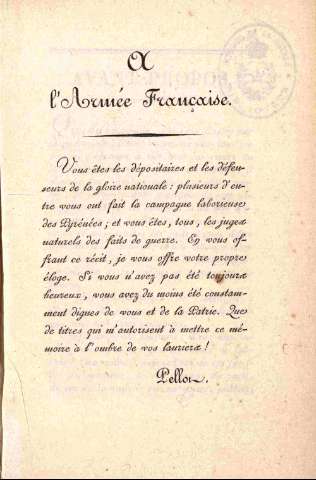 A
l'Armée Française.
Vous êtes les dépositaires et les défen-
seurs de la gloire nationale : plusieurs d'en-
tre vous ont fait la campagne laborieuse
des Pyrénées ; et vous êtes, tous, les juges
naturels des faits de guerre. En vous of-
frant ce récit, je vous offre votre propre
éloge. Si vous n'avez pas été toujours
heureux, vous avez du moins été constam-
ment dignes de vous et de la Patrie. Que
de titres qui m'autorisent à mettre ce mé-
moire à l'ombre de vos lauriers !
Pellot.